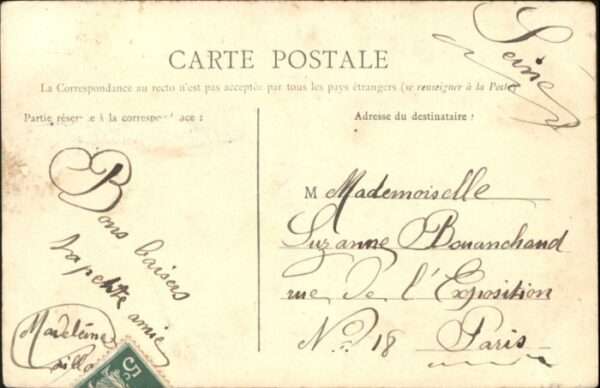 Seine
CARTE POSTALE
La Correspondance au recto n'est pas acceptée par tous les pays étrangers (se renseigner à la Poste)
Partie réservée à la correspondance :
Bons baisers
ta petite amie
Madeleine
Adresse du destinataire :
M Mademoiselle
Suzanne Bouanchaud
rue de l'Exposition
No 18 Paris
5